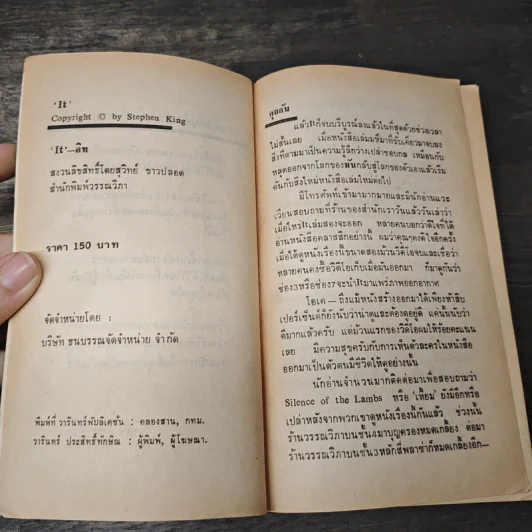 'It'
Copyright © by Stephen King
'It'—อิท
สงวนลิขสิทธิ์โดยสุวิทย์ ขาวปลอด
สำนักพิมพ์วรรณวิภา
ราคา 150 บาท
จัดจำหน่ายโดย :
บริษัท ธนบรรณจัดจำหน่าย จำกัด
พิมพ์ที่ วารินทร์พับลิเคชั่น : คลองสาน, กทม.
วารินทร์ ประสิทธิ์ทักษิณ : ผู้พิมพ์, ผู้โฆษณา.
คุยกัน
แล้วItก็จบบริบูรณ์ลงแล้วในที่สุดด้วยช่วงเวลา
ไม่สั้นเลย เมื่อหนังสือเล่มมหึมาที่รับเคี่ยวมาจบลง
สิ่งที่ตามมาเป็นความรู้สึกว่างเปล่าชอบกล เหมือนกับ
หลุดออกจากโลกของมันกลับสู่โลกของตัวเองแล้วเริ่ม
ต้นกับสิ่งใหม่หนังสือเล่มใหม่ต่อไป
มีโทรศัพท์เข้ามามากมายและมีนักอ่านแวะ
เวียนสอบถามที่ร้านของสำนักเราวันแล้ววันเล่าว่า
เมื่อไหร่Itเล่มสองจะออก หลายคนบอกว่าดีใจที่ได้
อ่านหนังสือคลาสสิกอย่างนั้น ผมว่าคุณคงดีใจอีกครั้ง
เมื่อได้ดูหนังเรื่องนี้ขนาดสองม้วนวิดีโอจบและเชื่อว่า
หลายคนคงซื้อวิดีโอเก็บเมื่อมันออกมา ก็มาดูกันว่า
ช่อง3หรือช่อง7จะนำItมาแพร่ภาพออกอากาศ
โอเค — ถึงแม้หนังสร้างออกมาได้เพียงห้าสิบ
เปอร์เซ็นต์ก็ยังนับว่าน่าดูและต้องดูอยู่ดี แค่นั้นนับว่า
ดีมากแล้วครับ แต่ม้วนแรกของวิดีโอผมให้ร้อยคะแนน
เลย มีความสุขครับกับการเห็นตัวละครในหนังสือ
ออกมาเป็นตัวตนมีชีวิตให้ดูอย่างนั้น
นักอ่านจำนวนมากติดต่อมาเพื่อสอบถามว่า
Silence of the Lambs หรือ 'เหี้ยม' ยังมีอีกหรือ
เปล่าหลังจากพวกเขาดูหนังเรื่องนี้กันแล้ว ช่วงนั้น
ร้านวรรณวิภาบนชั้น4มาบุญครองหมดเกลี้ยง ต่อมา
ร้านวรรณวิภาบนชั้น3หลักสี่พลาซ่าก็หมดเกลี้ยงอีก—